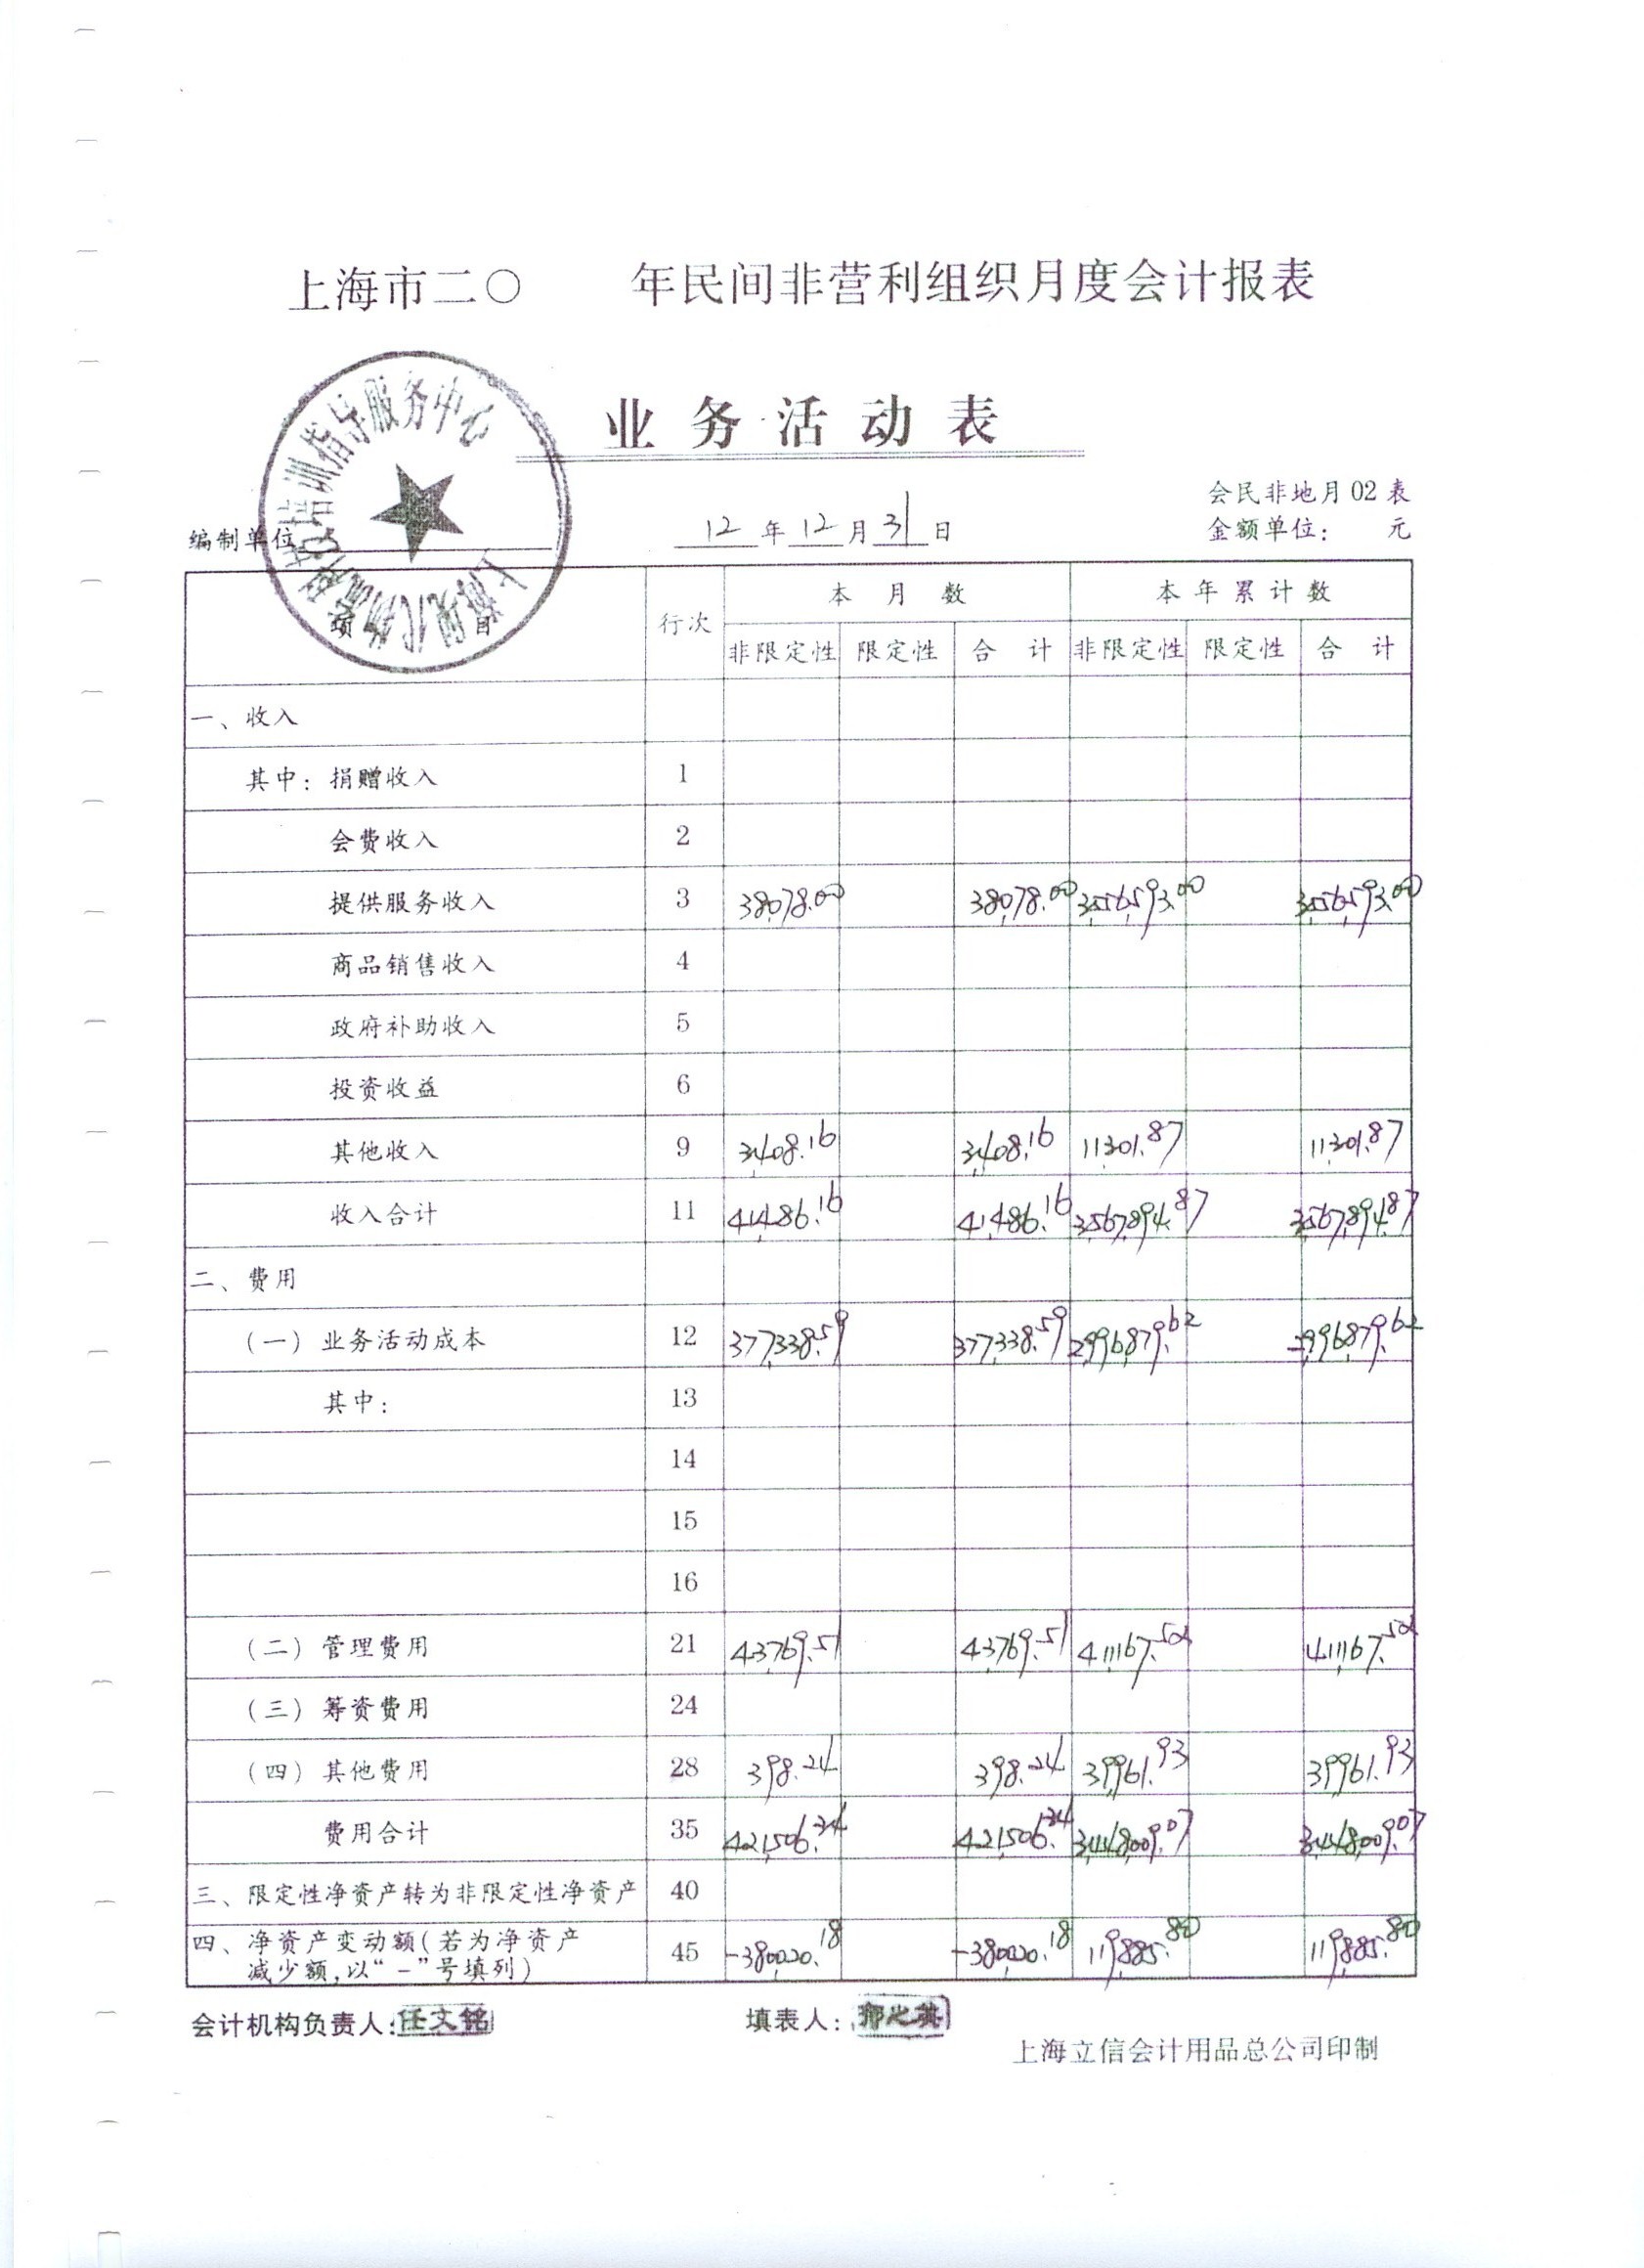 上海市二〇 年民间非营利组织月度会计报表
业务活动表
培训指导服务中心
会民非地月 02 表
编制单位 12 年 12 月 31 日 金额单位： 元
项 目 行次 本 月 数 本 年 累 计 数
非限定性 限定性 合 计 非限定性 限定性 合 计
一、收入
其中：捐赠收入 1
会费收入 2
提供服务收入 3 38,078.00 38,078.00 3,556,593.00 3,556,593.00
商品销售收入 4
政府补助收入 5
投资收益 6
其他收入 9 3,408.16 3,408.16 11,301.87 11,301.87
收入合计 11 41,486.16 41,486.16 3,567,894.87 3,567,894.87
二、费用
（一）业务活动成本 12 377,338.59 377,338.59 2,996,879.62 2,996,879.62
其中： 13
14
15
16
（二）管理费用 21 43,769.51 43,769.51 411,167.52 411,167.52
（三）筹资费用 24
（四）其他费用 28 398.24 398.24 39,961.93 39,961.93
费用合计 35 421,506.34 421,506.34 3,448,009.07 3,448,009.07
三、限定性净资产转为非限定性净资产 40
四、净资产变动额（若为净资产
减少额，以“－”号填列） 45 -380,020.18 -380,020.18 119,885.80 119,885.80
会计机构负责人：任文铭 填表人：
上海立信会计用品总公司印制